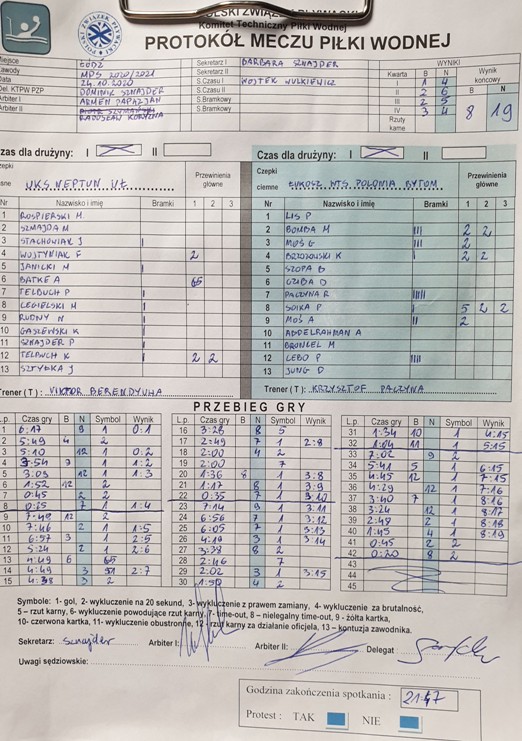 POLSKI ZWIĄZEK PŁYWACKI
Komitet Techniczny Piłki Wodnej
PROTOKÓŁ MECZU PIŁKI WODNEJ
Miejsce ŁÓDŹ Sekretarz I BARBARA SZNAJDER WYNIKI
Zawody MPS 2020/2021 Sekretarz II Kwarta B N Wynik końcowy
Data 24.10.2020 S.Czasu I WOJTEK WULKIEWICZ I 1 4
Del. KTPW PZP DOMINIK SZNAJDER S.Czasu II II 2 6 B N
Arbiter I ARMEN PAPAZJAN S.Bramkowy III 2 5 8 19
Arbiter II S.Bramkowy IV 3 4
RADOSŁAW KORYZNA Rzuty karne
Czas dla drużyny: I II
Czas dla drużyny: I II
Czepki jasne UKS NEPTUN UŁ Przewinienia główne
Nr Nazwisko i imię Bramki 1 2 3
1 ROSPIERSKI M
2 SZMAJDA M
3 STACHOWIAK J I
4 WOJTYNIAK F 2
5 JANICKI M I
6 BATKE A 65
7 TELBUCH P I
8 LEGIELSKI M I
9 RUDNY N I
10 GASZEWSKI K
11 SZNAJDER P
12 TELBUCH K 2 2
13 SZTYBKA J
Trener ( T ) : VIKTOR BERENDYUHA
Czepki ciemne ŁUKOSZ WTS POLONIA BYTOM Przewinienia główne
Nr Nazwisko i imię Bramki 1 2 3
1 LIS P
2 BOMBA M III 2 2
3 MOŚ G III 2
4 BRZOZOWSKI K 2 2
5 SZOPA B
6 GZUBA D
7 PACZYNA R IIIII
8 SOIKA P 5 2 2
9 MOŚ A 2
10 ABDELRAHMAN A
11 BRONCEL M
12 LEBO P IIII
13 JUNG D
Trener ( T ) : KRZYSZTOF PACZYNA
PRZEBIEG GRY
L.p. Czas gry B N Symbol Wynik
1 6:17 9 1 0:1
2 5:49 4 2
3 5:10 12 1 0:2
4 3:54 7 1 1:2
5 3:05 12 1 1:3
6 1:52 12 2
7 0:45 2 2
8 0:25 7 1 1:4
9 7:48 12 2
10 7:46 2 1 1:5
11 6:57 3 1 2:5
12 5:24 2 1 2:6
13 4:49 6 65
14 4:49 3 51 2:7
15 4:38 3 2
L.p. Czas gry B N Symbol Wynik
16 3:28 8 5
17 2:49 7 1 2:8
18 2:00 4 2
19 2:00 7
20 1:36 8 1 3:8
21 1:17 8 1 3:9
22 0:35 7 1 3:10
23 7:14 9 1 3:11
24 6:56 7 1 3:12
25 6:05 7 1 3:13
26 4:19 3 1 3:14
27 3:38 8 2
28 2:46 7
29 2:02 3 1 3:15
30 1:50 4 2
L.p. Czas gry B N Symbol Wynik
31 1:34 10 1 4:15
32 1:04 11 1 5:15
33 7:02 9 2
34 5:41 5 1 6:15
35 4:45 12 1 7:15
36 4:29 12 1 7:16
37 3:40 7 1 8:16
38 3:24 12 1 8:17
39 2:48 2 1 8:18
40 1:45 4 1 8:19
41 0:45 2 2
42 0:20 8 2
43
44
45
Symbole: 1- gol, 2- wykluczenie na 20 sekund, 3- wykluczenie z prawem zamiany, 4- wykluczenie za brutalność,
5 – rzut karny, 6- wykluczenie powodujące rzut karny, 7- time-out, 8 – nielegalny time-out, 9 - żółta kartka,
10- czerwona kartka, 11- wykluczenie obustronne, 12 - rzut karny za działanie oficjela, 13 – kontuzja zawodnika.
Sekretarz: Sznajder Arbiter I: Arbiter II: Delegat
Uwagi sędziowskie:
Godzina zakończenia spotkania : 21:47
Protest : TAK NIE